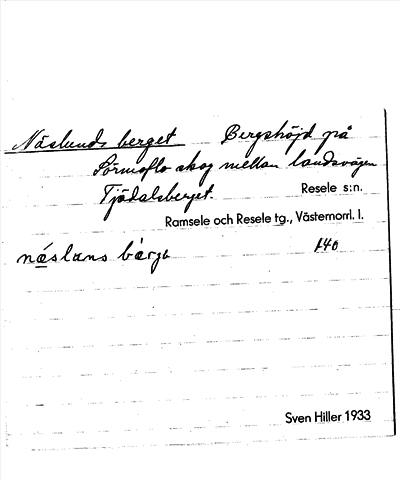 Näslunds berget Bergshöjd på
Sörmoflo skog mellan landsvägen
Tjädalsberget. Resele s:n.
Ramsele och Resele tg., Västernorrl. l.
näsluns bärge 140
Sven Hiller 1933